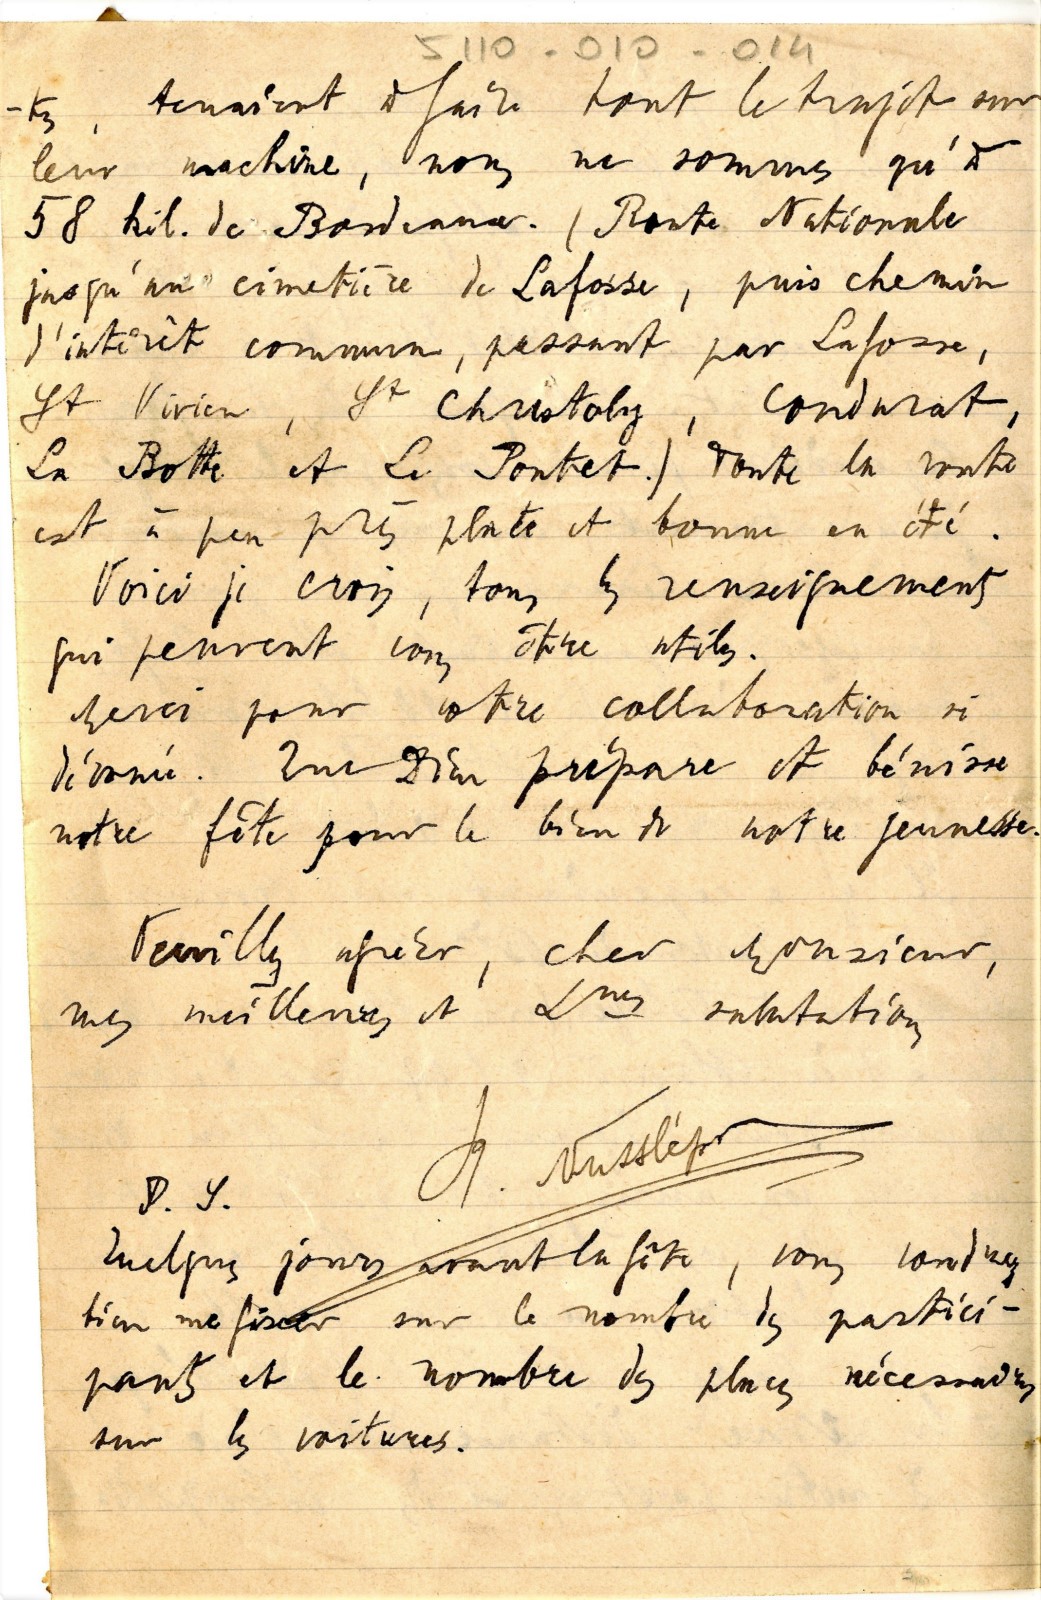 5110 - 010 - 014
-tes, tenaient à faire tout le trajet sur
leur machine, nous ne sommes qu'à
58 kil. de Bordeaux. (Route Nationale
jusqu'au cimetière de Lafosse, puis chemin
d'intérêt commun, passant par Lafosse,
St Vivien, St Christoly, Condurat,
La Botte et Le Pontet.) Toute la route
est à peu près plate et bonne en été.
Voici je crois, tous les renseignements
qui peuvent vous être utiles.
Merci pour votre collaboration si
dévouée. Que Dieu prépare et bénisse
notre fête pour le bien de notre jeunesse.
Veuillez agréer, cher Monsieur,
mes meilleures et Xnes salutations
P. S.
Quelques jours avant la fête, vous voudrez
bien me fixer sur le nombre des partici-
pants et le nombre des places nécessaires
sur les voitures.